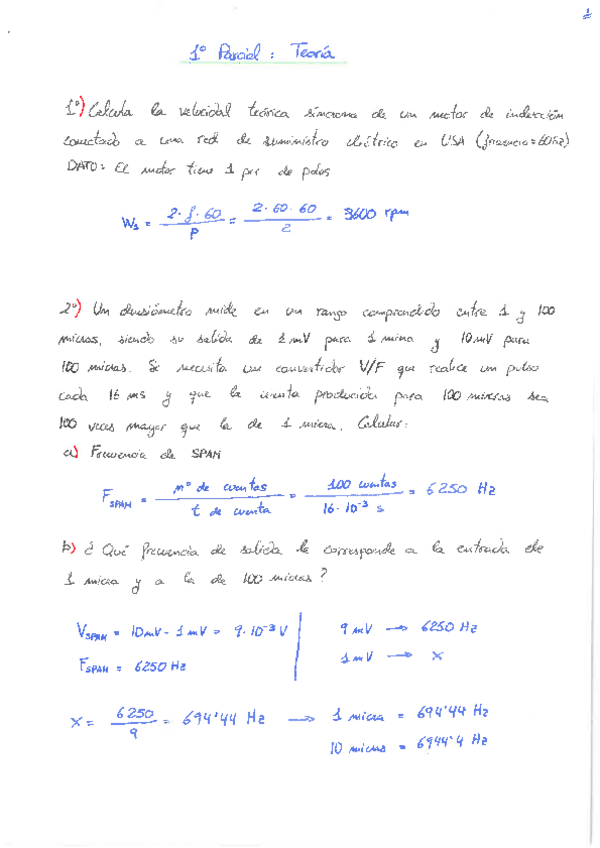 1
1º Parcial: Teoría
1º) Calcula la velocidad teórica síncrona de un motor de inducción
conectado a una red de suministro eléctrico en USA (frecuencia=60Hz)
DATO: El motor tiene 1 par de polos
Ws = 2·f·60 / P = 2·60·60 / 2 = 3600 rpm
2º) Un divisiómetro mide en un rango comprendido entre 1 y 100
micras, siendo su salida de 1mV para 1 micra y 10mV para
100 micras. Se necesita un convertidor V/F que realice un pulso
cada 16 ms y que la cuenta producida para 100 micras sea
100 veces mayor que la de 1 micra. Calcular:
a) Frecuencia de SPAN
F SPAN = nº de cuentas / t de cuenta = 100 cuentas / 16·10⁻³ s = 6250 Hz
b) ¿Qué frecuencia de salida le corresponde a la entrada de
1 micra y a la de 100 micras?
V SPAN = 10mV - 1mV = 9·10⁻³ V
F SPAN = 6250 Hz
9 mV → 6250 Hz
1mV → X
X = 6250 / 9 = 694'44 Hz → 1 micra = 694'44 Hz
10 micras = 6944'4 Hz